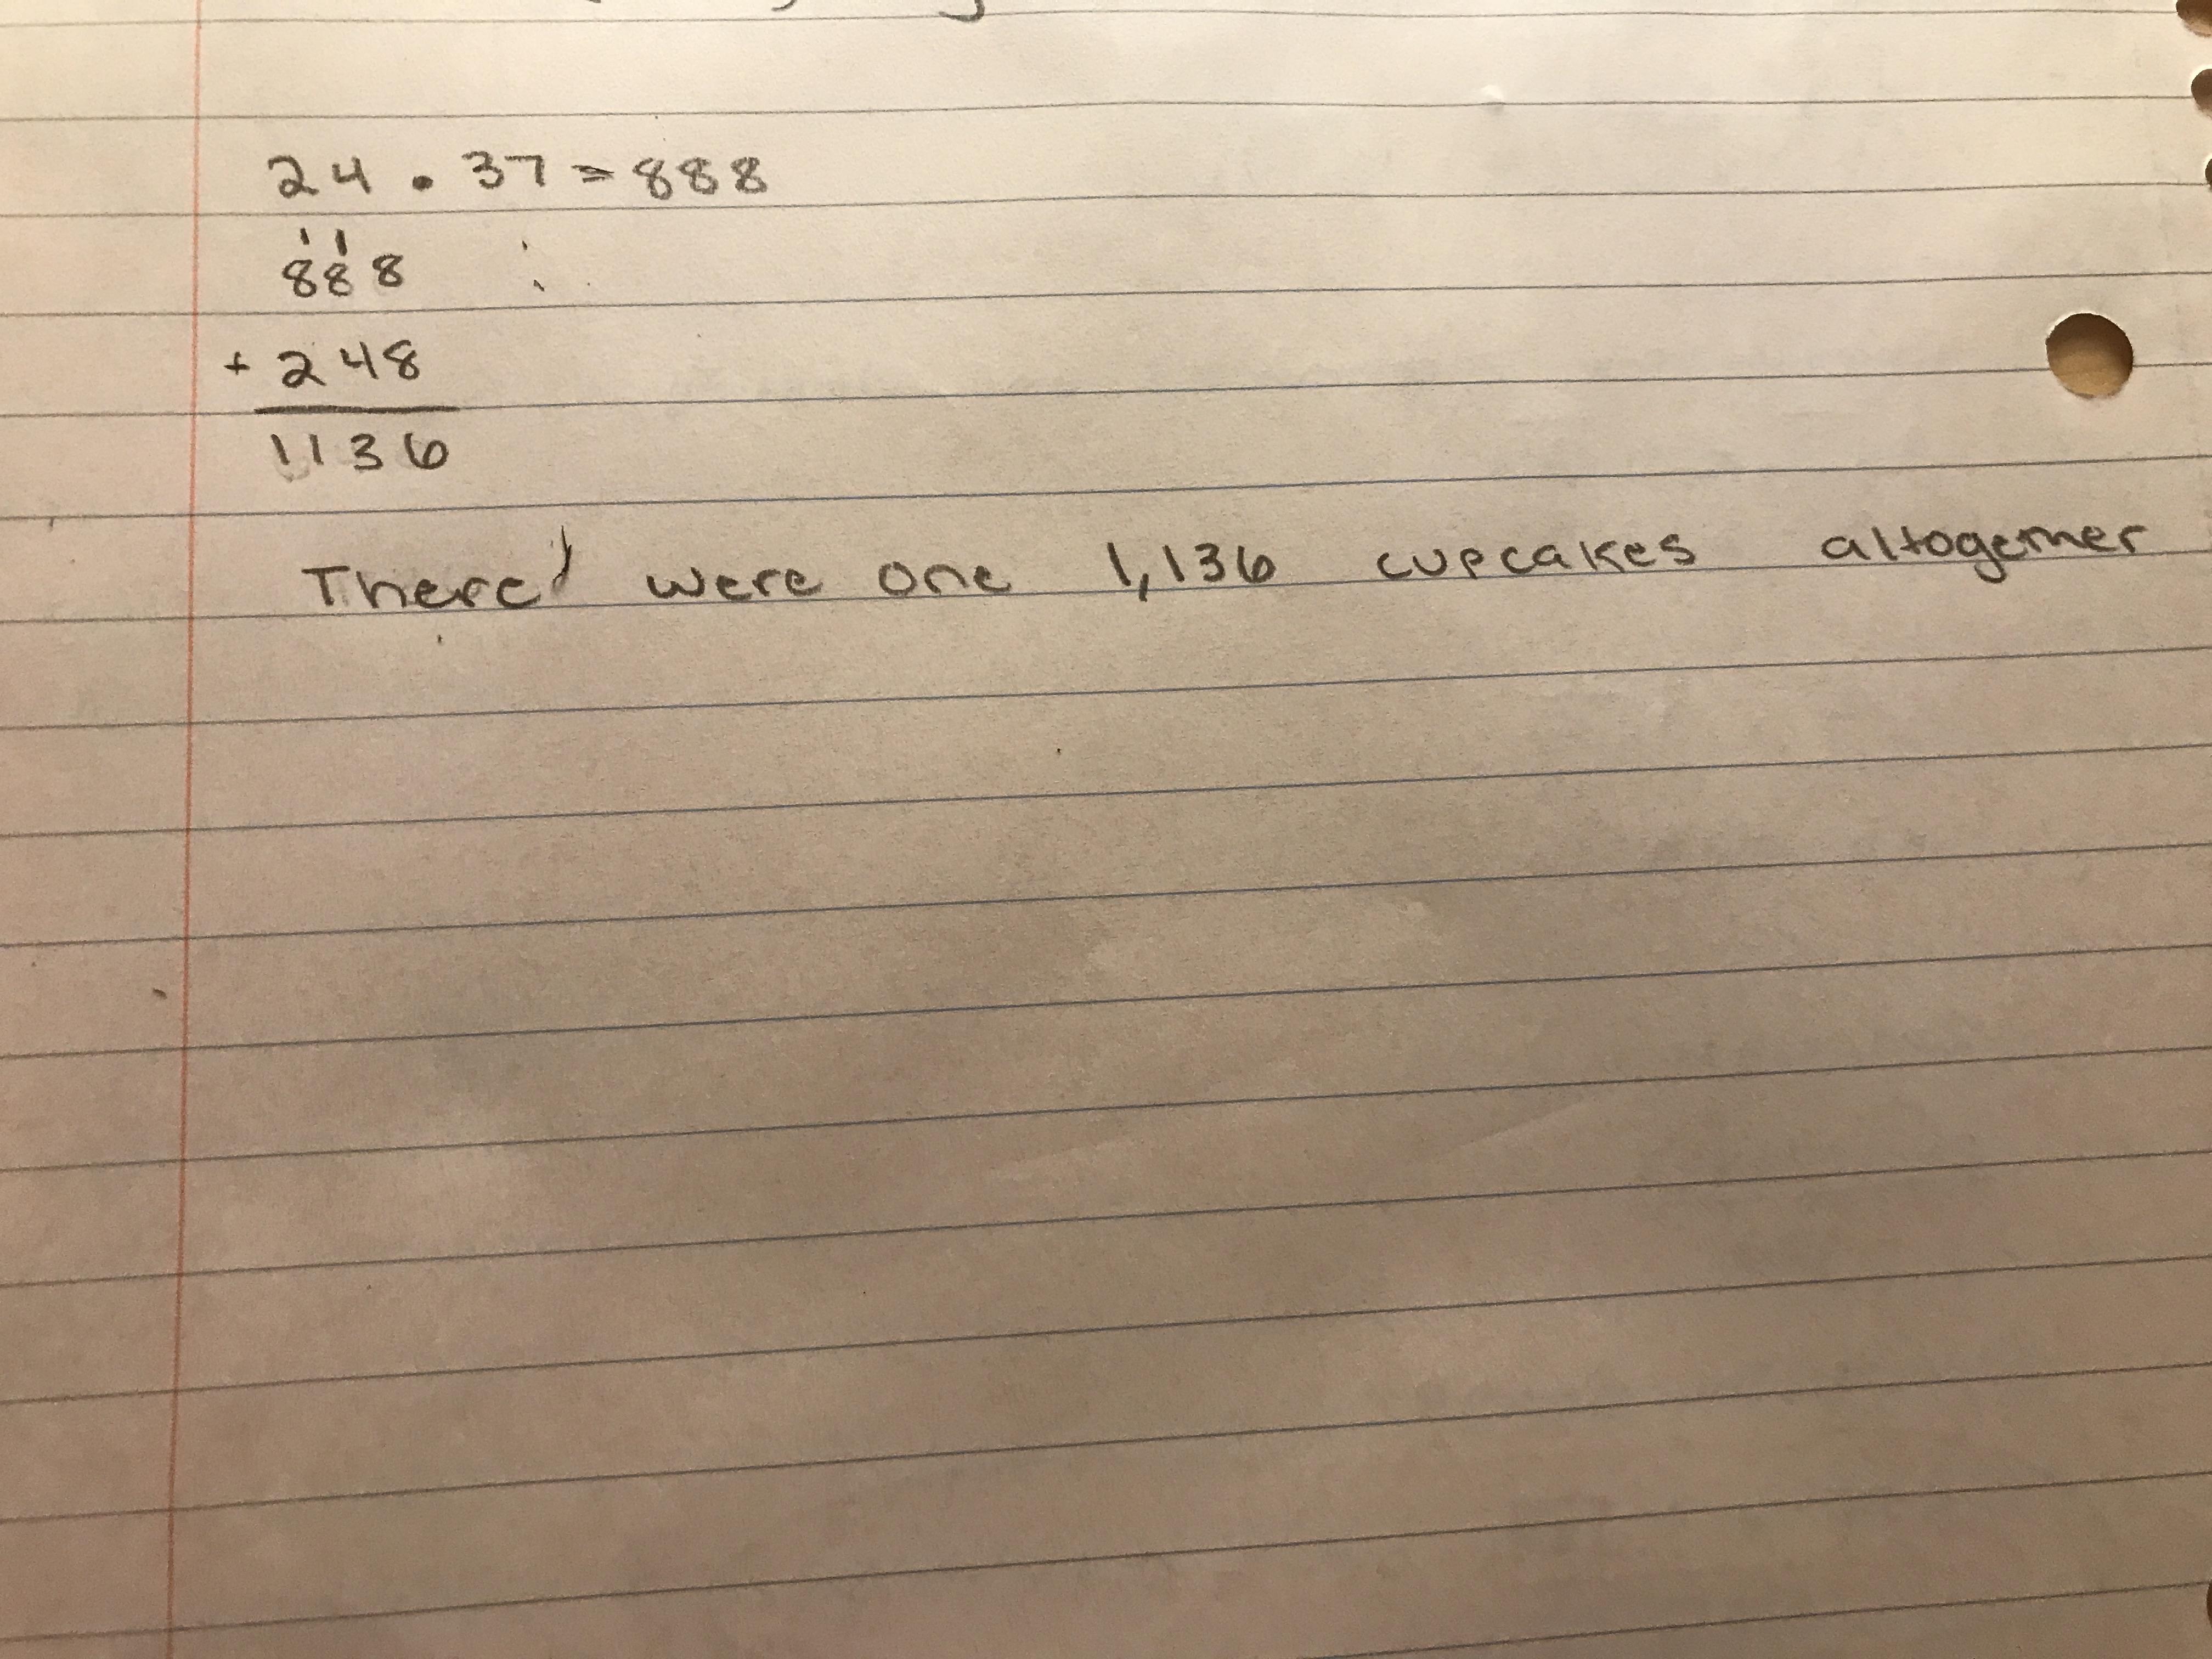 24 • 37 = 888
11
888
+ 248
1136
There were one 1,136 cupcakes altogether